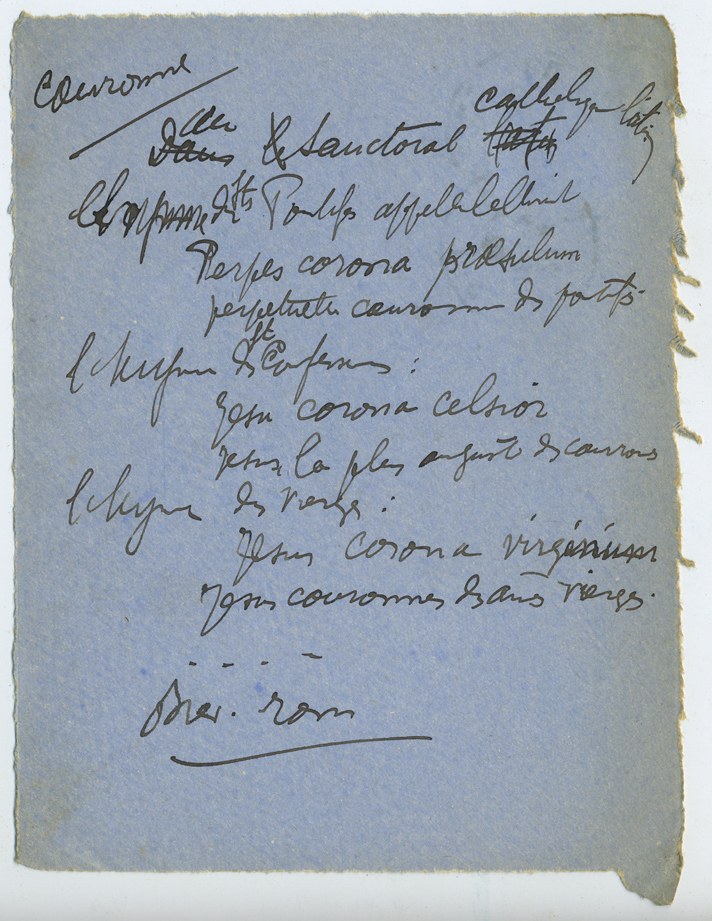 couronne
au
Dans le Sanctoral latin catholique latin
l'hymne des Sts Pontifes appelle
Perpes corona præsulum
perpetuelle couronne des pontifes
l'hymne des St Confesseurs :
Jesu corona celsior
Jesus la plus auguste des couronnes
l'hymne des vierges :
Jesus corona virginum
Jesus couronnes des vierges.
Brev. rom